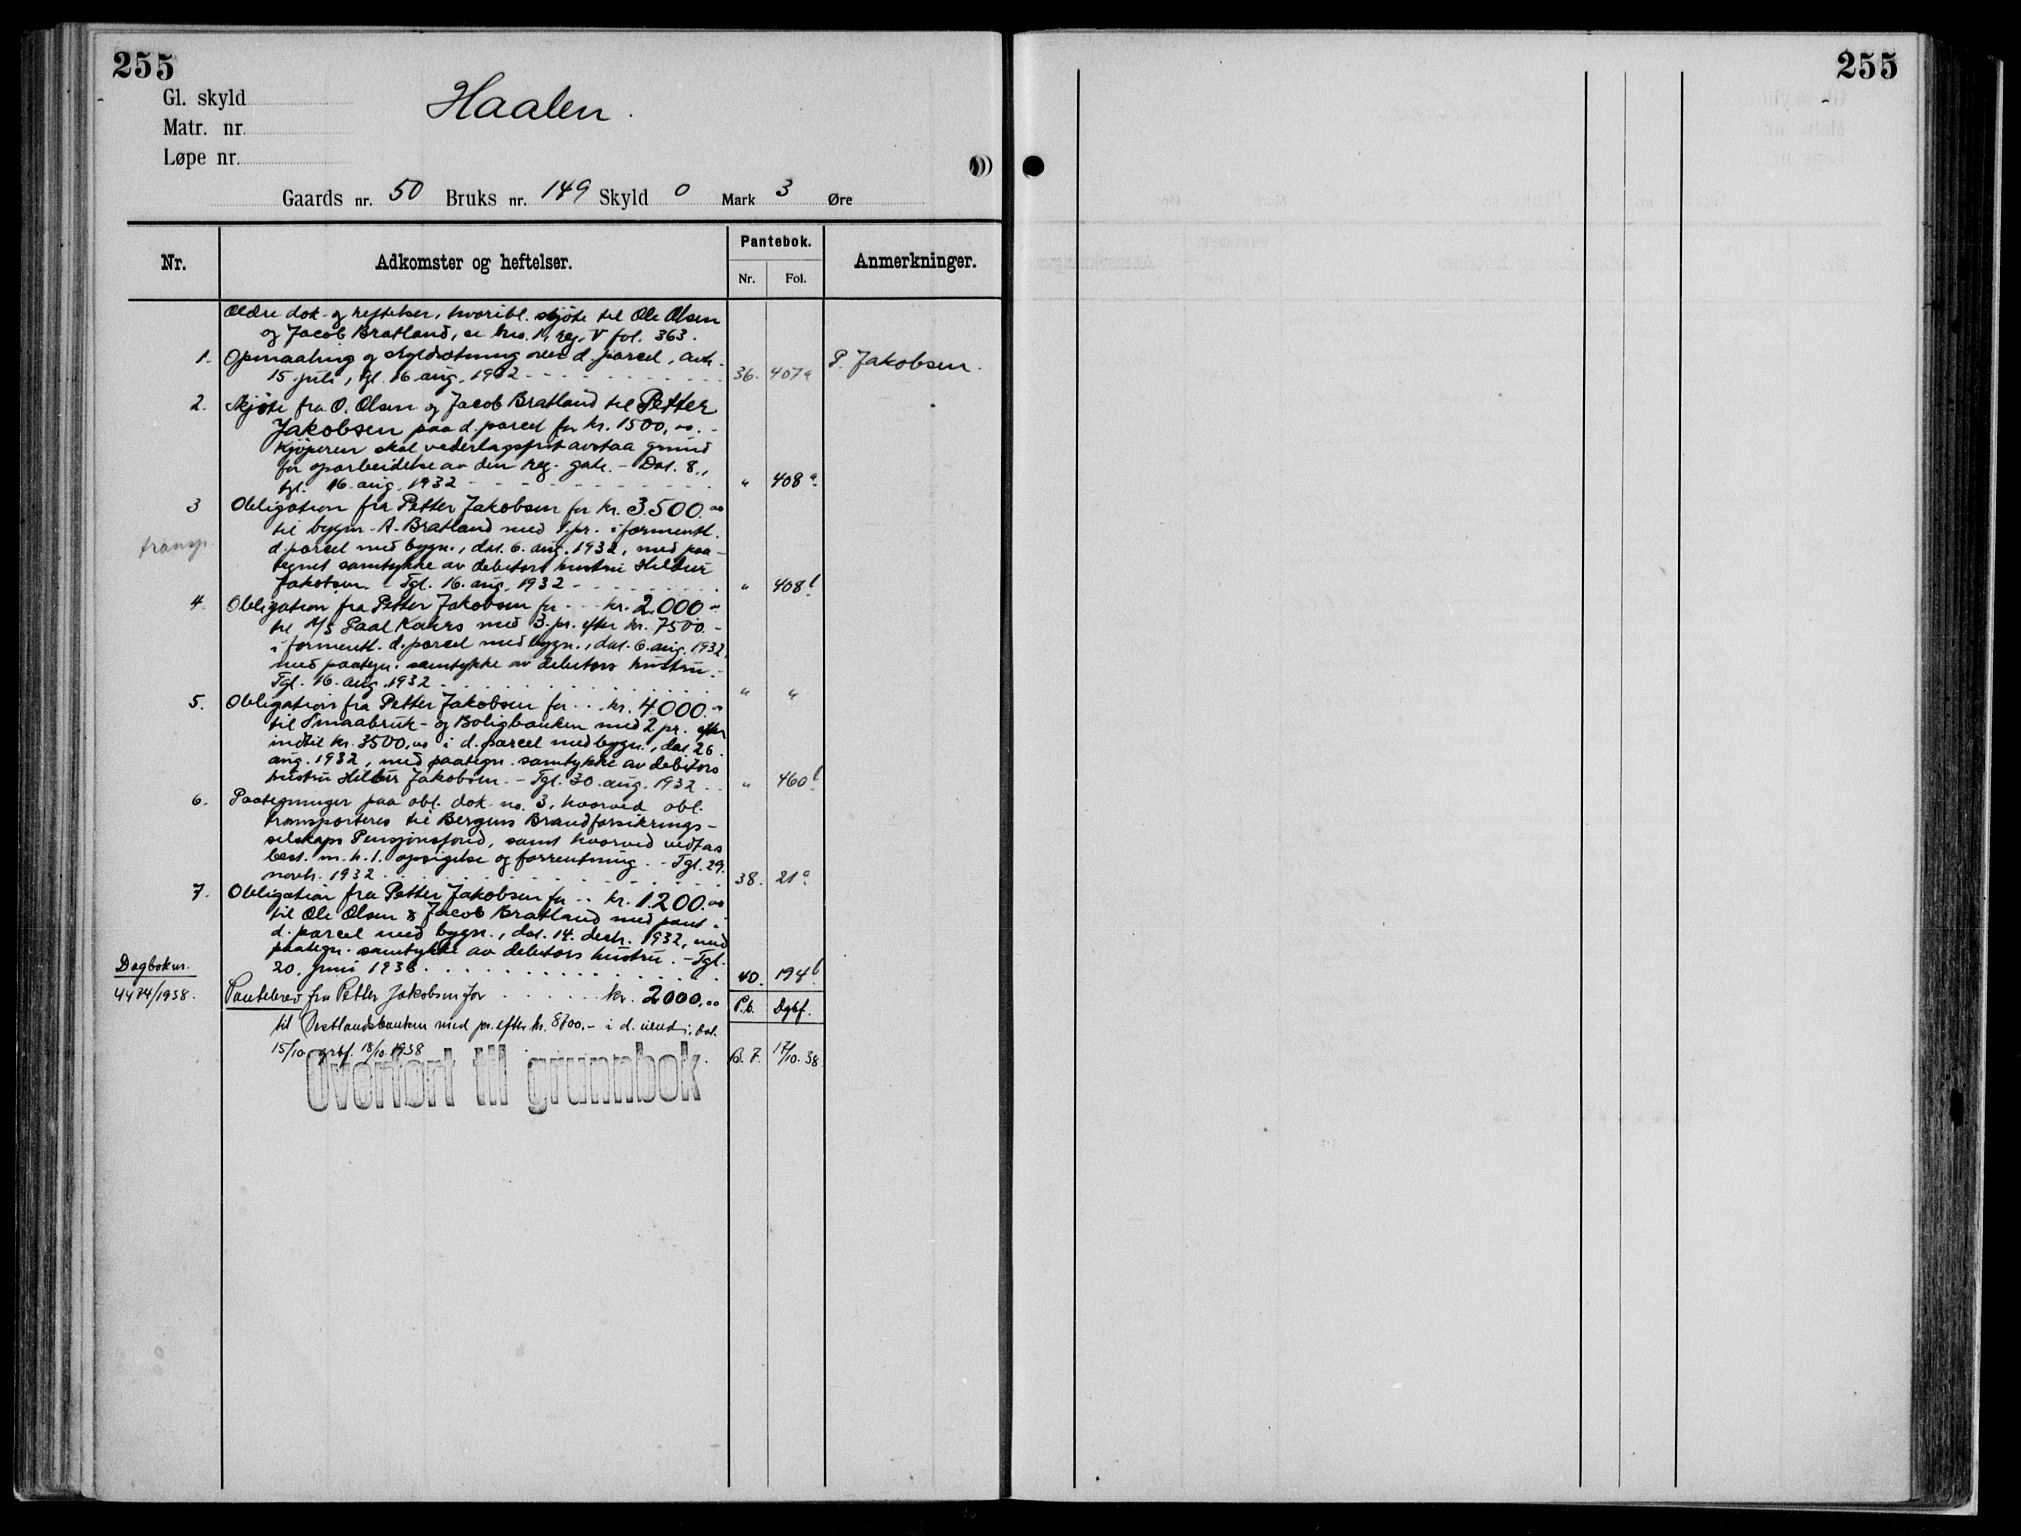 255
255
Gl. skyld
Haalen.
Matr. nr.
Løpe nr.
Gaards nr. 50 Bruks nr. 149 Skyld 0 Mark 3 Øre
Nr. Adkomster og heftelser. Pantebok. Nr. Fol. Anmerkninger.
Ældre dok. og heftelser, hvoribl. skjöte til Ole Olsen
og Jacob Bratland, se bno. 1, reg. V fol. 363.
1. Opmaaling og skyldsetning over d. parcel, avh.
15 juli, tgl. 16 aug. 1932 36. 407a P. Jakobsen.
2. Skjöte fra O. Olsen og Jacob Bratland til Petter
Jakobsen paa d. parcel for kr. 1500,00.-
Kjöperen skal vederlagsfrit avstaa grund
for oparbeidelse av den reg. gate. - Dat. 8.,
tgl. 16 aug. 1932 " 408a.
3 Obligation fra Petter Jakobsen for kr. 3.500.00
til bygm. A. Bratland med 1. pr. i formentl.
transp. d. parcel med bygn., dat. 6. aug. 1932, med paa-
tegnet samtykke av debitors hustru Hildur
Jakobsen - Tgl. 16. aug. 1932 - " 408b.
4. Obligation fra Petter Jakobsen for kr. 2.000
til A/S Paal Kahrs med 3. pr. efter kr. 7500.-
i formentl. d. parcel med bygn., dat. 6. aug. 1932,
med paategn. samtykke av debitors hustru.-
Tgl. 16. aug. 1932 " "
5. Obligation fra Petter Jakobsen for kr. 4.000.
til Smaabruk- og Boligbanken med 2 pr. efter
indtil kr. 3500,00 i d. parcel med bygn., dat 26.
aug. 1932, med paategn. samtykke av debitors
hustru Hildur Jakobsen. - Tgl. 30. aug. 1932 " 460b.
6. Paategninger paa obl. dok. no. 3, hvorved obl.
transporteres til Bergens Brandforsikrings-
selskaps Pensjonsfond, samt hvorved vedtas
best. m. h. t. opsigelse og forrentning. - Tgl. 29.
novb. 1932 38. 21a.
7. Obligation fra Petter Jakobsen for kr. 1.200.00
til Ole Olsen & Jacob Bratland med pant i
d. parcel med bygn., dat. 14. decb. 1932, med
paategn. samtykke av debitors hustru. - Tgl.
20. juni 1936. 40. 194b.
Dagboknr.
4474/1938. Pantebrev fra Petter Jakobsen for kr. 2000,00 P.b. Dgbf.
til Vestlandsbanken med pr. efter kr. 8700.- i d. eiend., dat.
15/10, grbf. 18/10. 1938 B. 7. 17/10. 38
Overført til grunnbok